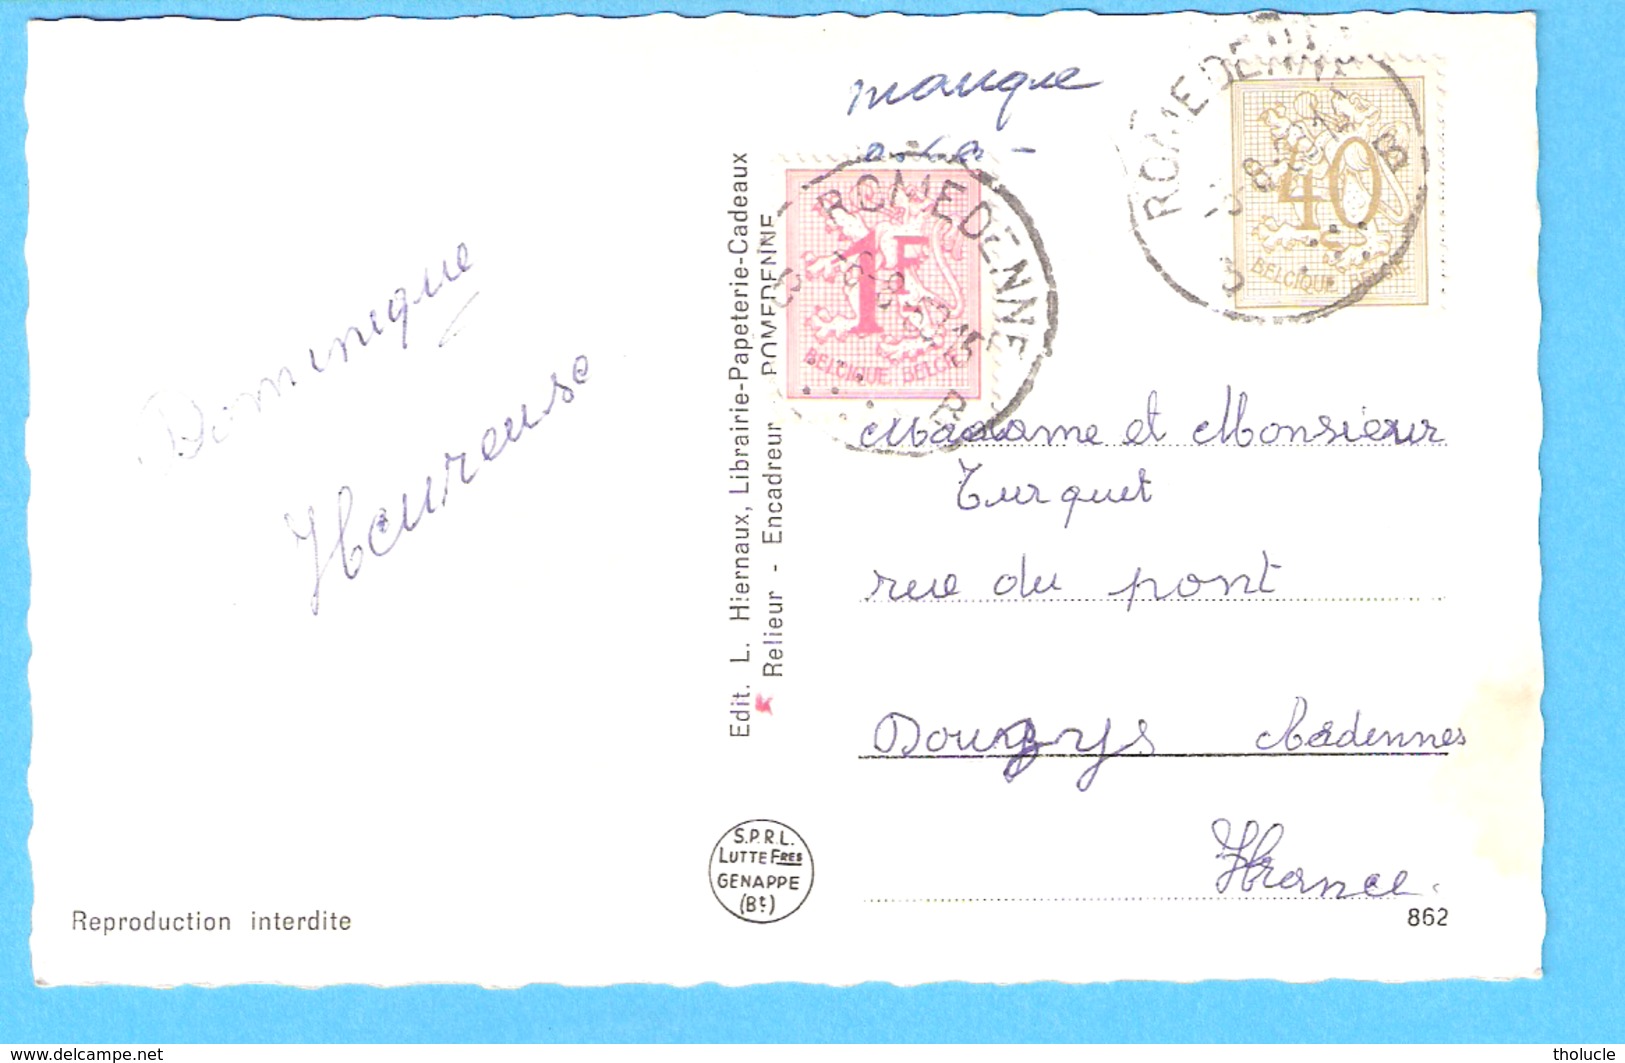 manque
ROMEDENNE
40
BELGIQUE BELGIE
ROMEDENNE
1F
BELGIQUE BELGIE
Dominique
Heureuse
Edit. L. Hiernaux, Librairie-Papeterie-Cadeaux
Relieur - Encadreur ROMEDENNE
Madame et Monsieur
Turquet
rue du pont
Douzys Ardennes
France.
S.P.R.L.
LUTTE FRES
GENAPPE
(Bt)
Reproduction interdite
862
delcampe.net
tholucle